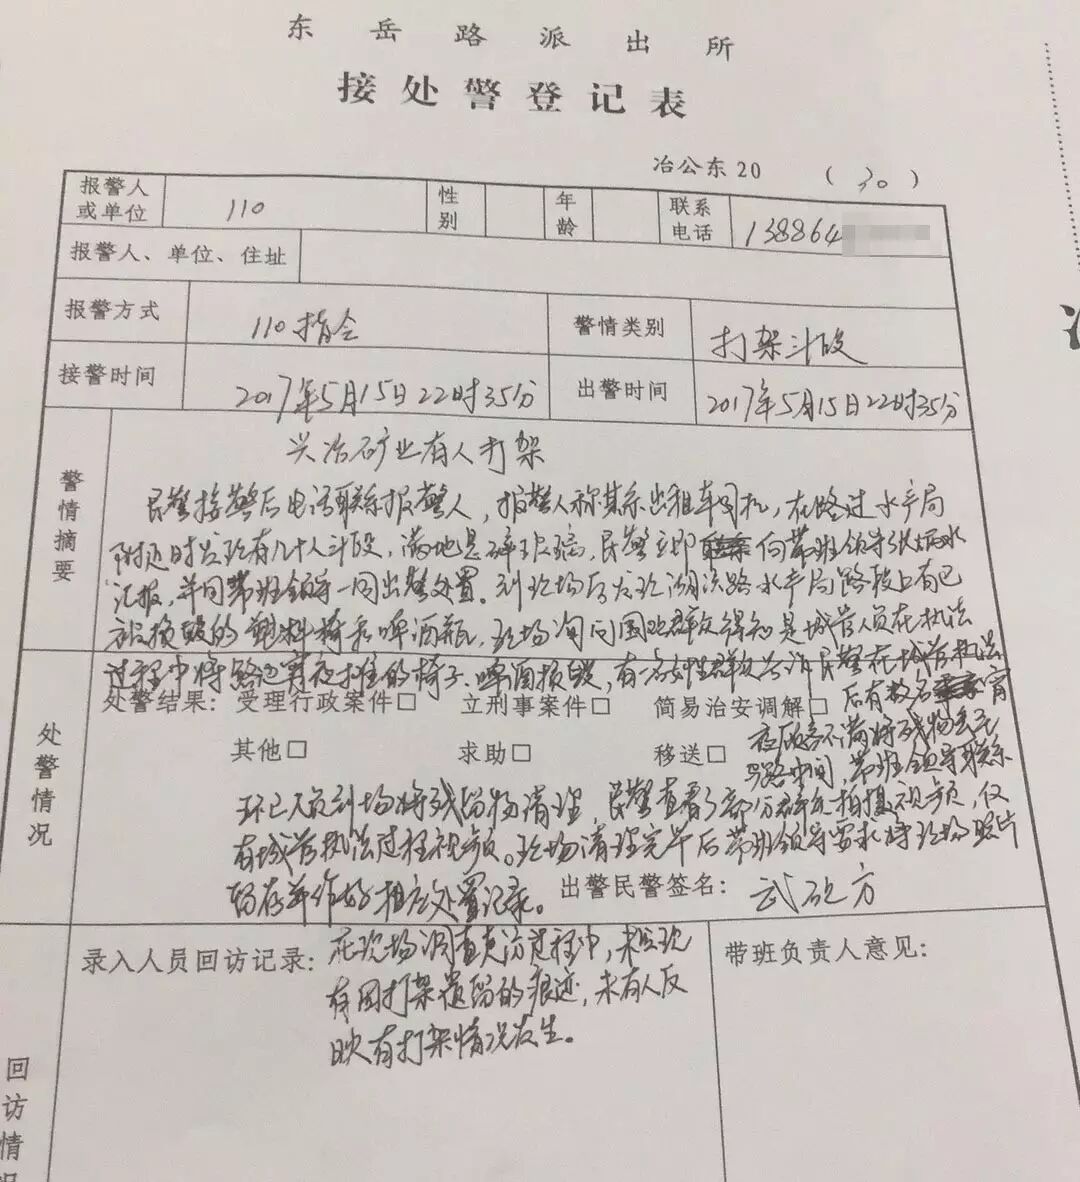 东岳路派出所
接处警登记表
冶公东20 （30）
报警人或单位 110 性别 年龄 联系电话 138864
报警人、单位、住址
报警方式 110指令 警情类别 打架斗殴
接警时间 2017年5月15日22时35分 出警时间 2017年5月15日22时35分
警情摘要
兴冶矿业有人打架
民警接警后电话联系报警人，报警人称其系出租车司机，在路过水产局
附近时发现有几十人斗殴，满地是碎玻璃，民警立即 向带班领导
汇报，并同带班领导一同出警处置。到现场后发现湖滨路水产局路段上有已
被损毁的塑料椅和啤酒瓶，现场询问围观群众得知是城管人员在执法
过程中将路边宵夜摊的椅子、啤酒损毁，有一名女性群众告诉民警在城管执法
处警情况
处警结果： 受理行政案件□ 立刑事案件□ 简易治安调解□ 后有数名 宵
其他□ 求助□ 移送□ 夜顾客不满将残物丢元
马路中间，带班领导联系
环卫人员到场将残留物清理，民警查看了部分群众拍摄视频，仅
有城管执法过程视频。现场清理完毕后带班领导要求将现场照片
留存并作好相应处置记录。 出警民警签名：
回访情况
录入人员回访记录： 在现场调查走访过程中，未发现 带班负责人意见：
有因打架遗留的痕迹，未有人反
映有打架情况发生。